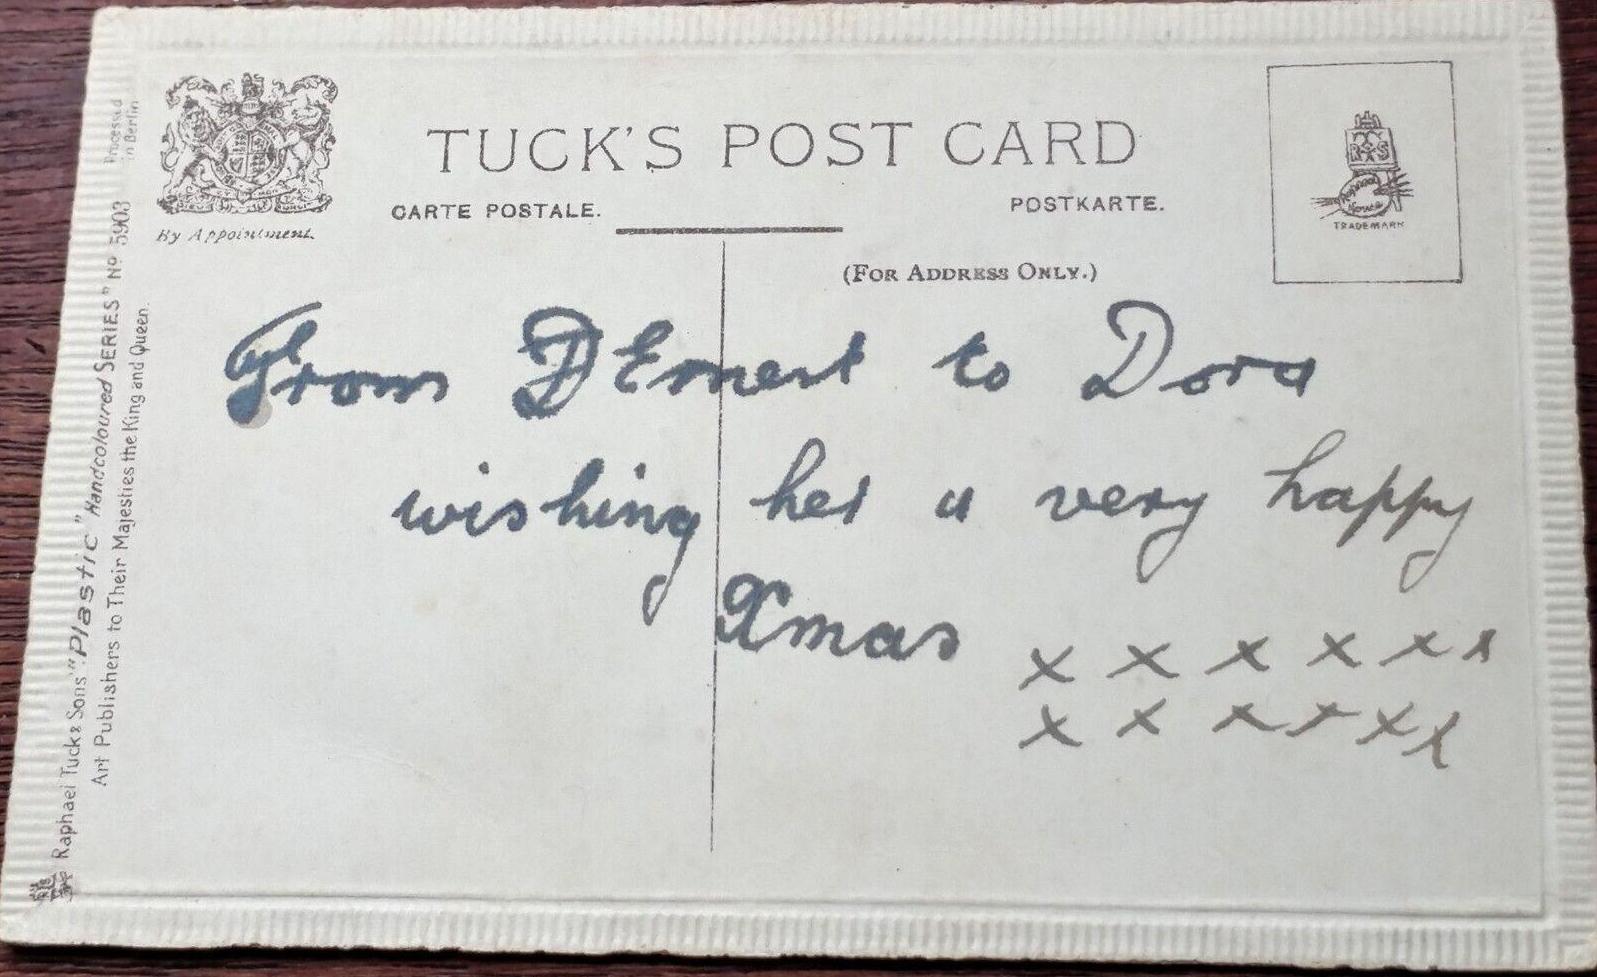 TUCK'S POST CARD
CARTE POSTALE.
POSTKARTE.
By Appointment.
(FOR ADDRESS ONLY.)
TRADEMARK
From Ernest to Dora
wishing her a very happy
Xmas x x x x x x
x x x x x x
Raphael Tuck & Sons' "Plastic" Handcoloured SERIES" No 5903
Art Publishers to Their Majesties the King and Queen.
Processed
in Berlin